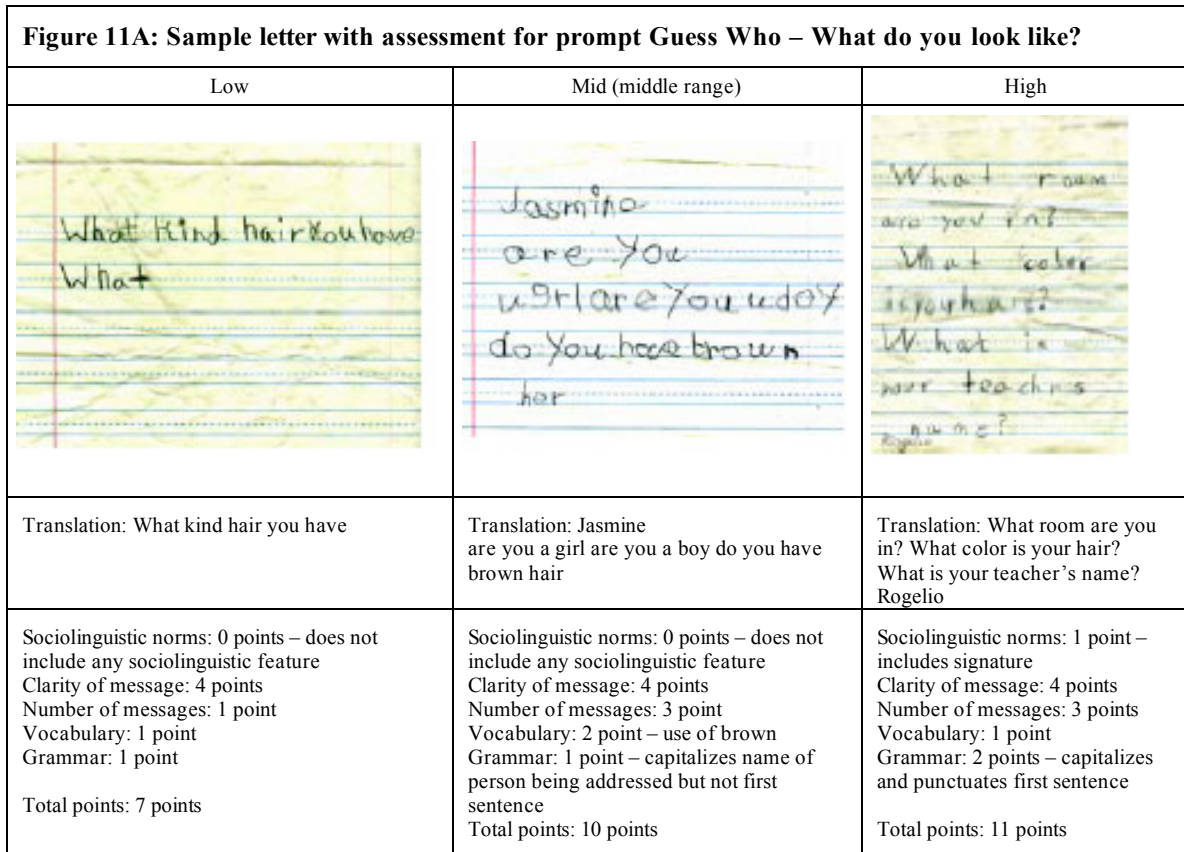 Figure 11A: Sample letter with assessment for prompt Guess Who – What do you look like?
Low
Mid (middle range)
High
What kind hair You have
What
Jasmine
are You
u grl are You u doy
do You have brown
her
What room
are you in?
What color
is your hair?
What is
your teachrs
name?
Rogelio
Translation: What kind hair you have
Translation: Jasmine
are you a girl are you a boy do you have
brown hair
Translation: What room are you
in? What color is your hair?
What is your teacher’s name?
Rogelio
Sociolinguistic norms: 0 points – does not
include any sociolinguistic feature
Clarity of message: 4 points
Number of messages: 1 point
Vocabulary: 1 point
Grammar: 1 point
Total points: 7 points
Sociolinguistic norms: 0 points – does not
include any sociolinguistic feature
Clarity of message: 4 points
Number of messages: 3 point
Vocabulary: 2 point – use of brown
Grammar: 1 point – capitalizes name of
person being addressed but not first
sentence
Total points: 10 points
Sociolinguistic norms: 1 point –
includes signature
Clarity of message: 4 points
Number of messages: 3 points
Vocabulary: 1 point
Grammar: 2 points – capitalizes
and punctuates first sentence
Total points: 11 points